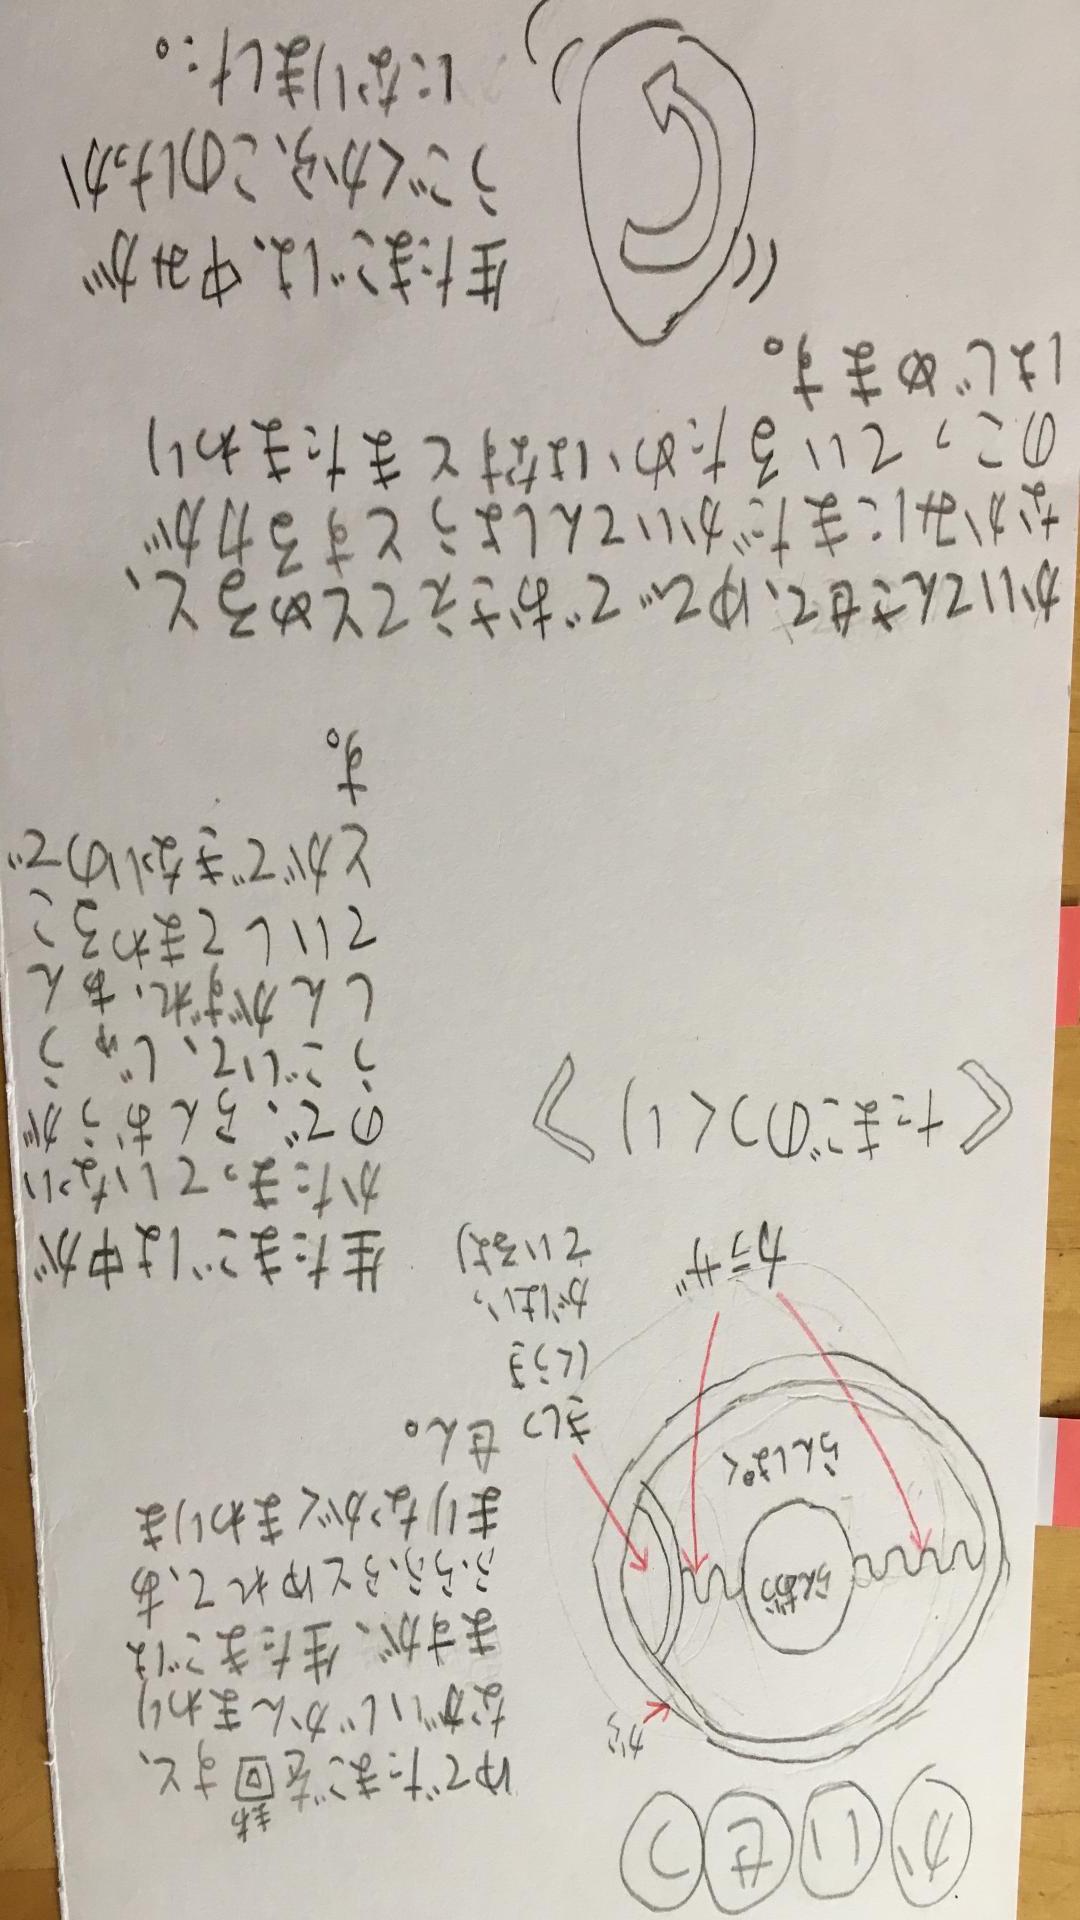 かいせつ
まわ
ゆでたまごを回すと、
ながいじかんまわり
ますが、生たまごは
ふらふらとゆれて、あ
まりながくまわりま
せん。
から
らんおう
らんぱく
きしつ
(くうき
がはいっ
ているよ)
カラザ
《たまごのつくり》
生たまごは中が
かたまっていない
ので、らんおうが
うごいて、じゅう
しんがずれ、あん
ていしてまわるこ
とができないので
す。
かいてんさせて、ゆびでおさえてとめると、
なかみにまだかいてんしようとする力が
のこっているためはなすとまたまわり
はじめます。
生たまごは、中みが
うごくから、このけっか
になりました。